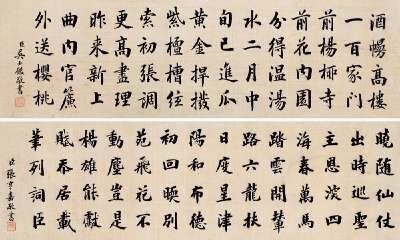 酒幔高樓
一百家宮
前楊柳寺
前花內園
分得溫湯
水二月中
旬已進瓜
黃金捍撥
紫檀槽絃
索初張調
更高盡理
昨來新上
曲內官簾
外送櫻桃
臣吳士鑑敬書
曉隨仙仗
出時巡聖
主恩波四
海春萬馬
踏雲開輦
路六龍扶
日度天津
陽和布德
初回暖別
苑飛花不
動塵豈是
楊雄能獻
賦忝居載
筆列詞臣
臣張亨嘉敬書